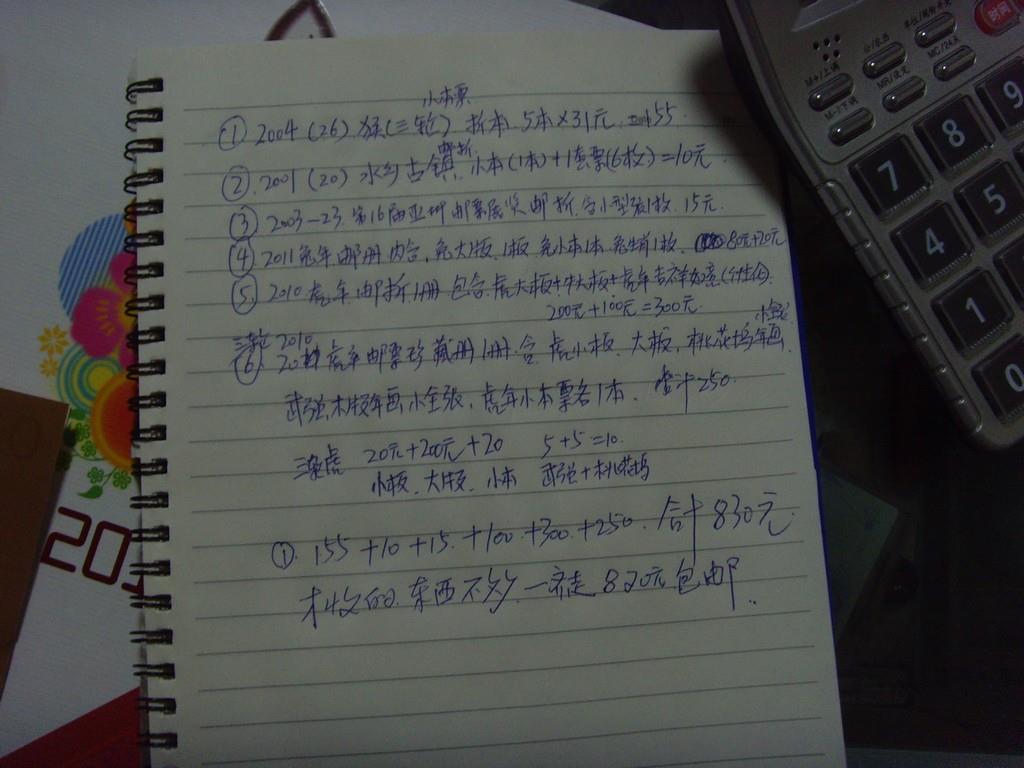 小本票
① 2004 (26) 猴(三轮) 折本 5本×31元 = 155
邮折
② 2001 (20) 水乡古镇 小本(1本)+1套票(6枚)=10元
③ 2003-23 第16届亚州邮票展览邮折 含小型张1枚 15元
④ 2011兔年邮册 内含,兔大版1板 兔小本1本 兔 1枚 80元+20元
⑤ 2010虎年邮折1册 包含虎大板+牛大板+虎年吉祥如意(
200元+100元=300元
三轮 2010 小全张
⑥ 20 虎年邮票珍藏册1册 含 虎小板、大版,桃花坞年画
武强木版年画小全张,虎年小本票各1本 合计250
三轮虎 20元+200元+20 5+5=10
小板、大版、小本 武强+桃花坞
① 155 +10 +15 +100 +300 +250 合计830元
才收的 东西不少 一齐走820元包邮
时间
单位/闹铃开关
台/农历
MC/24天
M+/上调
MR/设定
M-/下调
9
8
7
5
4
1
0
20